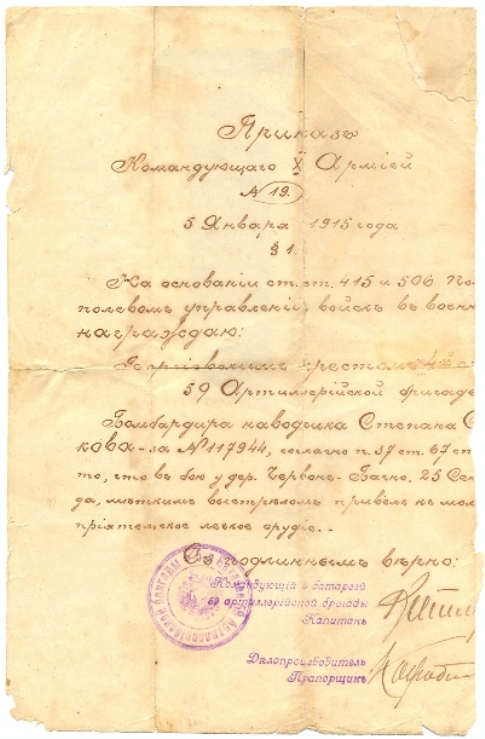 Приказъ
Командующаго X Арміей
№ 19.
5 Января 1915 года
§ 1.
На основаніи ст. ст. 415 и 506
полевомъ управленіи войскъ въ
награждаю:
Георгіевскимъ крестомъ 4й
59 Артиллерійской бригаде
Бомбардира наводчика Степана
кова - за № 117944, согласно п. 37 ст. 67
то, что въ бою у дер. Червоне-Багно, 25
да, мѣткимъ выстрѣломъ привелъ къ
пріятельское легкое орудіе..
Съ подлиннымъ вѣрно:
Командующій батареей
артиллерійской бригады
Капитанъ
Дѣлопроизводитель
Прапорщикъ